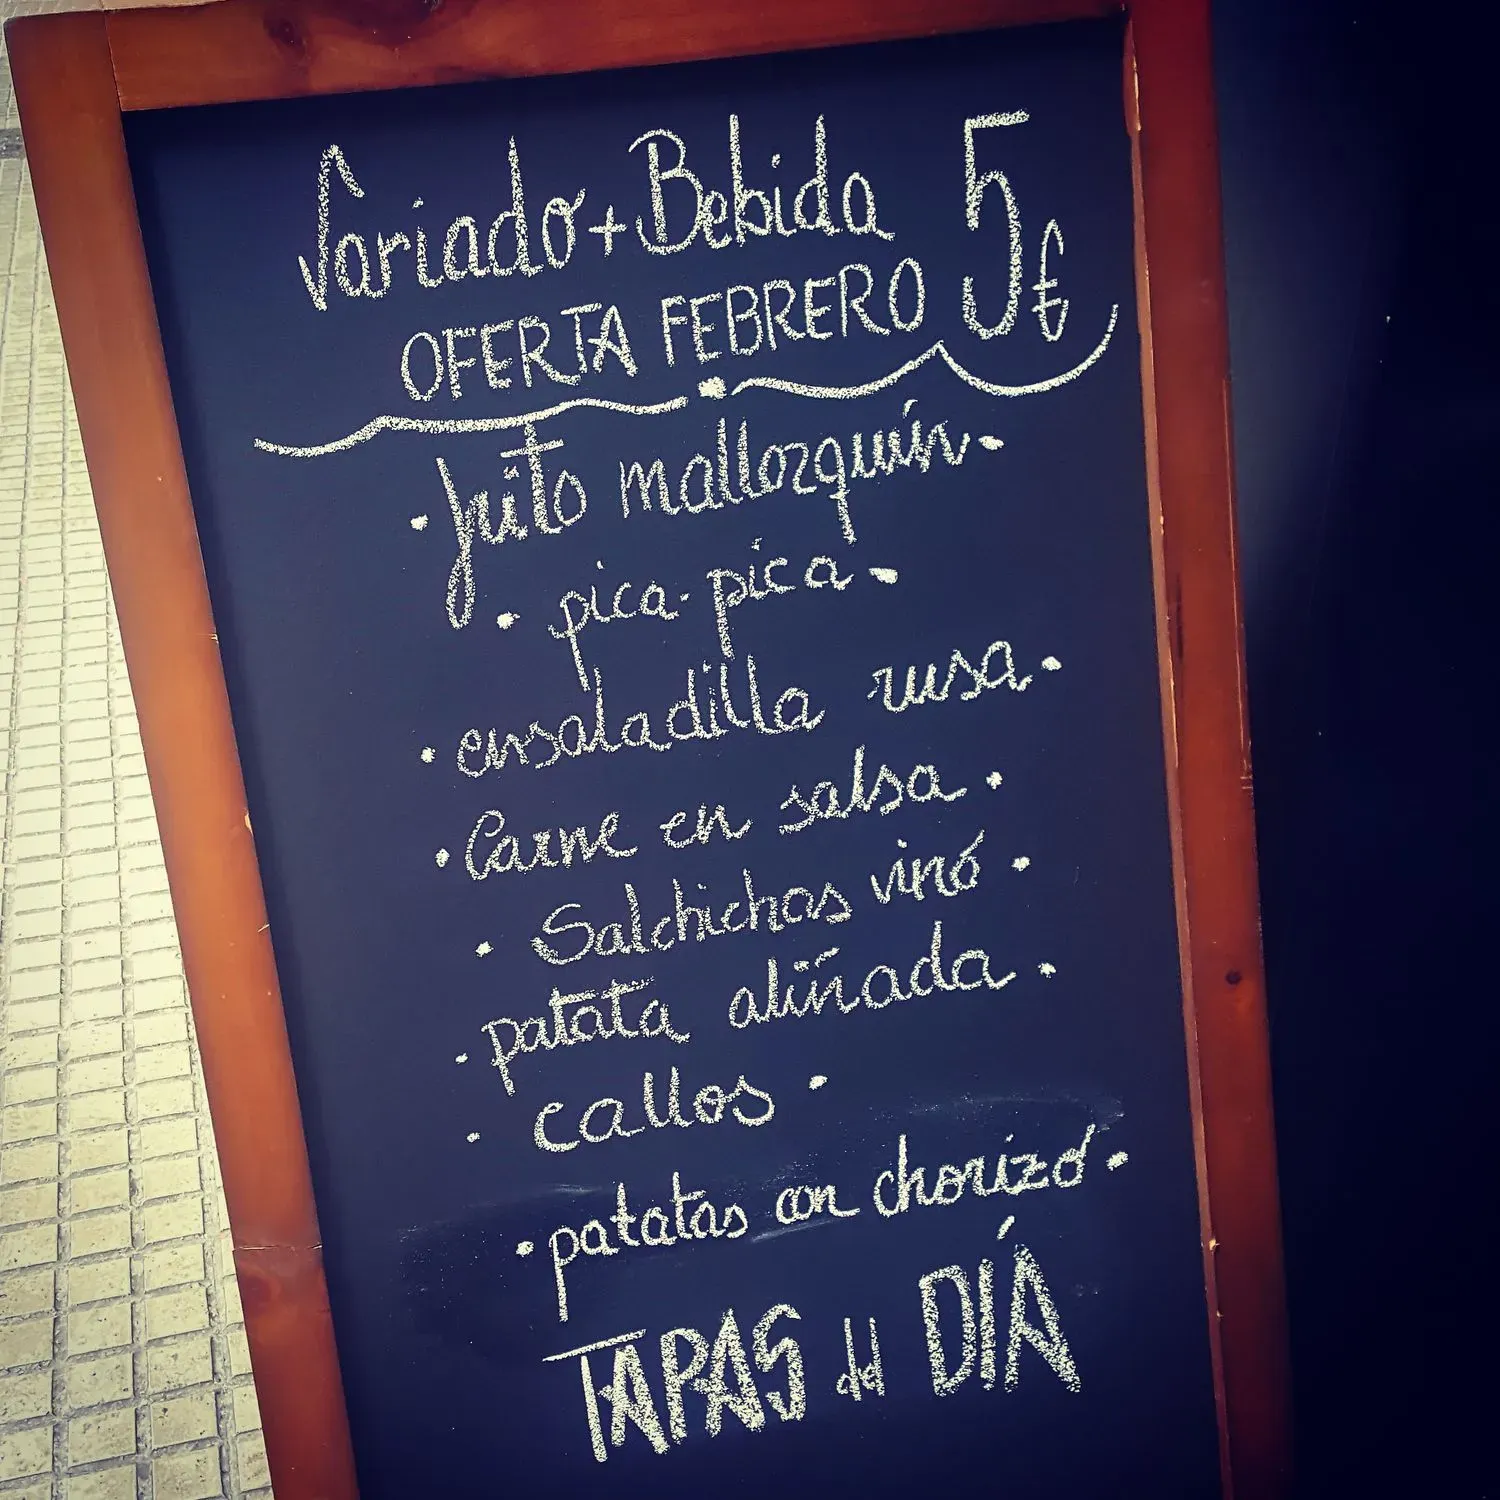 Variado + Bebida 5€
OFERTA FEBRERO
• frito mallorquín •
• pica-pica •
• ensaladilla rusa •
• Carne en salsa •
• Salchichas vino •
• patata aliñada •
• callos •
• patatas con chorizo •
TAPAS del DÍA